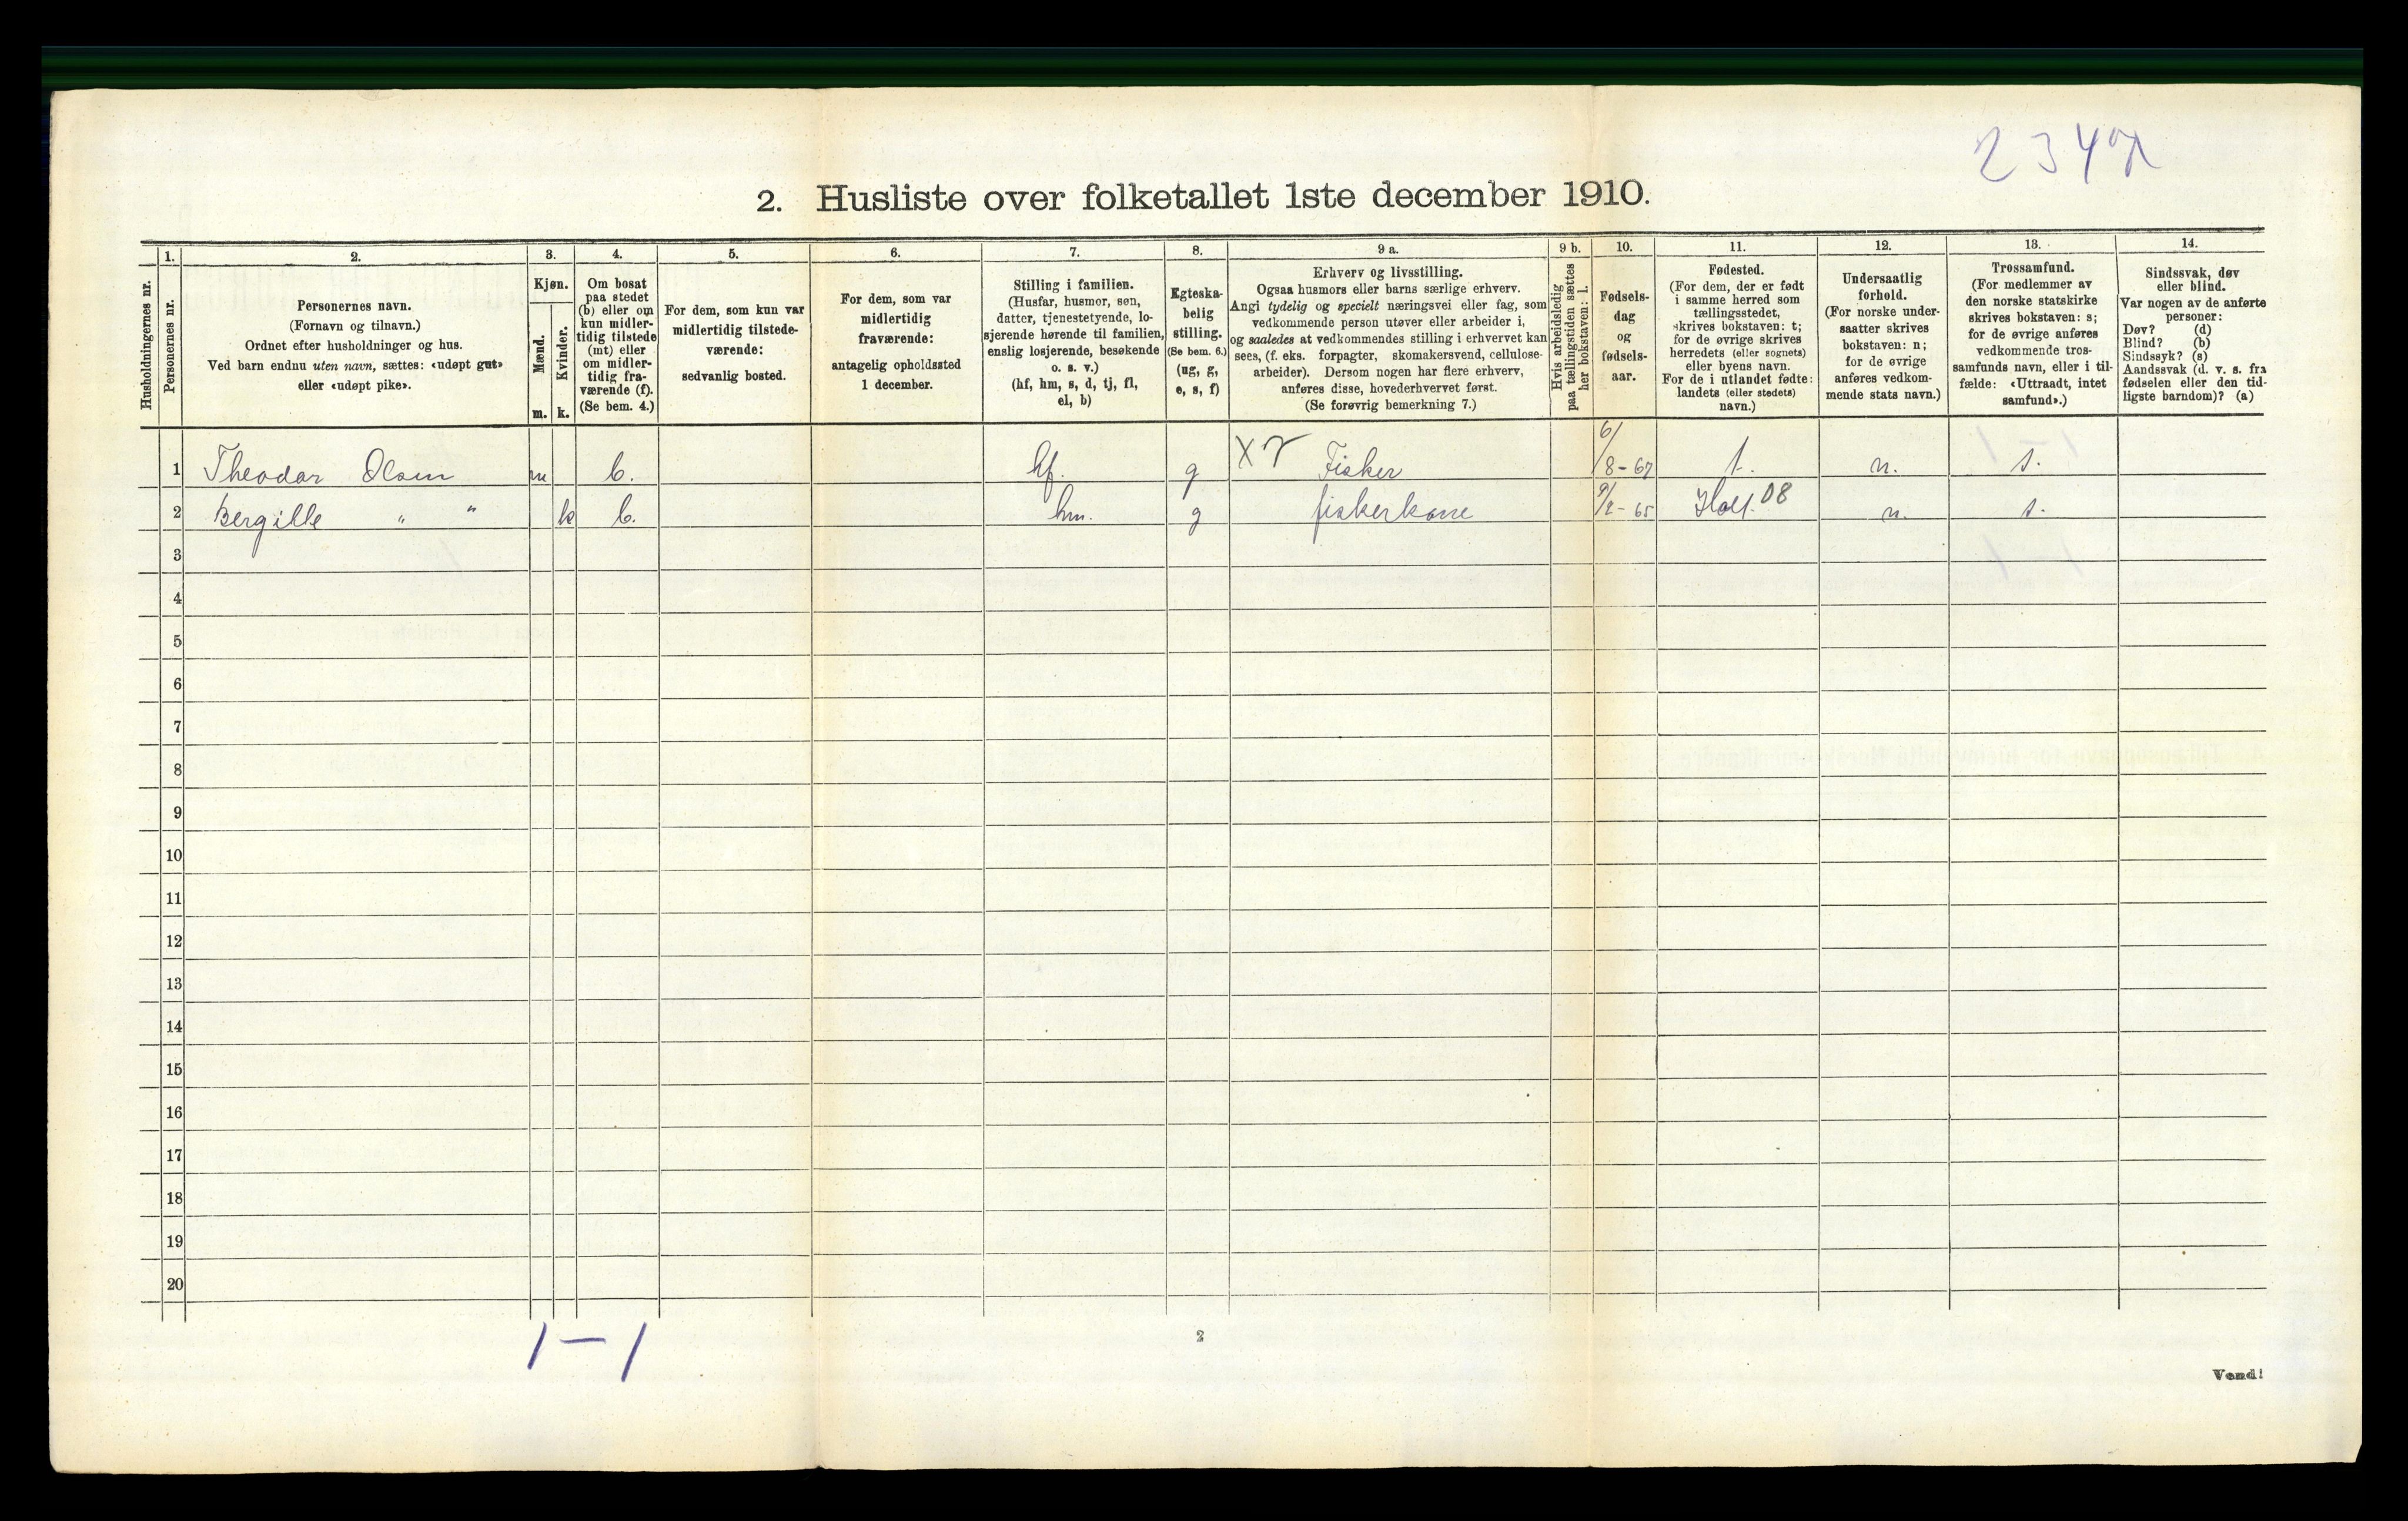 2347
2. Husliste over folketallet 1ste december 1910.
Husholdningernes nr.
1.
Personernes nr.
2.
Personernes navn.
(Fornavn og tilnavn.)
Ordnet efter husholdninger og hus.
Ved barn endnu uten navn, sættes: «udøpt gut»
eller «udøpt pike».
3.
Kjøn.
Mænd.
m.
Kvinder.
k.
4.
Om bosat
paa stedet
(b) eller om
kun midler-
tidig tilstede
(mt) eller
om midler-
tidig fra-
værende (f).
(Se bem. 4.)
5.
For dem, som kun var
midlertidig tilstede-
værende:
sedvanlig bosted.
6.
For dem, som var
midlertidig
fraværende:
antagelig opholdssted
1 december.
7.
Stilling i familien.
(Husfar, husmor, søn,
datter, tjenestetyende, lo-
sjerende hørende til familien,
enslig losjerende, besøkende
o. s. v.)
(hf, hm, s, d, tj, fl,
el, b)
8.
Egteska-
belig
stilling.
(Se bem. 6.)
(ug, g,
e, s, f)
9 a.
Erhverv og livsstilling.
Ogsaa husmors eller barns særlige erhverv.
Angi tydelig og specielt næringsvei eller fag, som
vedkommende person utøver eller arbeider i,
og saaledes at vedkommendes stilling i erhvervet kan
sees, (f. eks. forpagter, skomakersvend, cellulose-
arbeider). Dersom nogen har flere erhverv,
anføres disse, hovederhvervet først.
(Se forøvrig bemerkning 7.)
9 b.
Hvis arbeidsledig
paa tællingstiden sættes
her bokstaven: l.
10.
Fødsels-
dag
og
fødsels-
aar.
11.
Fødested.
(For dem, der er født
i samme herred som
tællingsstedet,
skrives bokstaven: t;
for de øvrige skrives
herredets (eller sognets)
eller byens navn.
For de i utlandet fødte:
landets (eller stedets)
navn.)
12.
Undersaatlig
forhold.
(For norske under-
saatter skrives
bokstaven: n;
for de øvrige
anføres vedkom-
mende stats navn.)
13.
Trossamfund.
(For medlemmer av
den norske statskirke
skrives bokstaven: s;
for de øvrige anføres
vedkommende tros-
samfunds navn, eller i til-
fælde: «Uttraadt, intet
samfund».)
14.
Sindssvak, døv
eller blind.
Var nogen av de anførte
personer:
Døv? (d)
Blind? (b)
Sindssyk? (s)
Aandssvak (d. v. s. fra
fødselen eller den tid-
ligste barndom)? (a)
1 Theodor Olsen m b. hf. g X Fisker 6/8-67 t. n. s.
2 Bergille " " k b. hm. g fiskerkone 9/2-65 Holt. 08 n. s.
3
4
5
6
7
8
9
10
11
12
13
14
15
16
17
18
19
20
1-1
2
Vend!